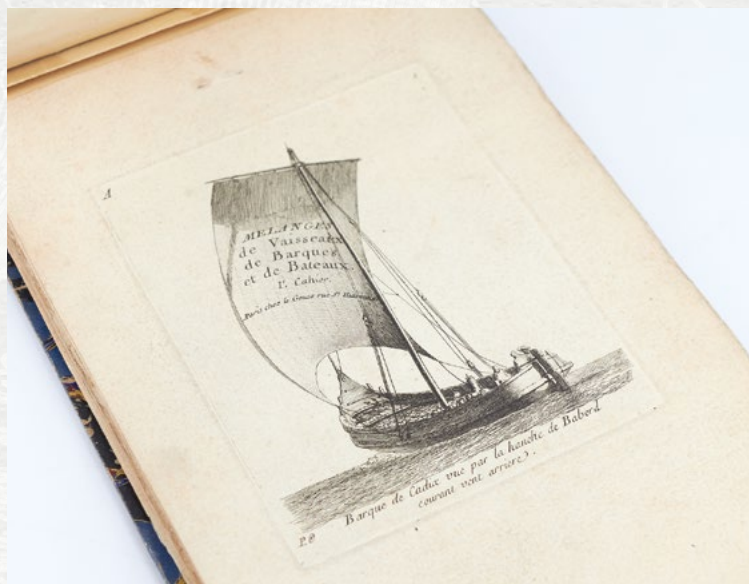 A
MELANGES
de Vaisseaux
de Barques
et de Bateaux.
1r. Cahier.
Paris chez le Gouaz rue St. Hiacinte
Barque de Cadix vue par la hanche de Babord
courant vent arriere.
P. 8